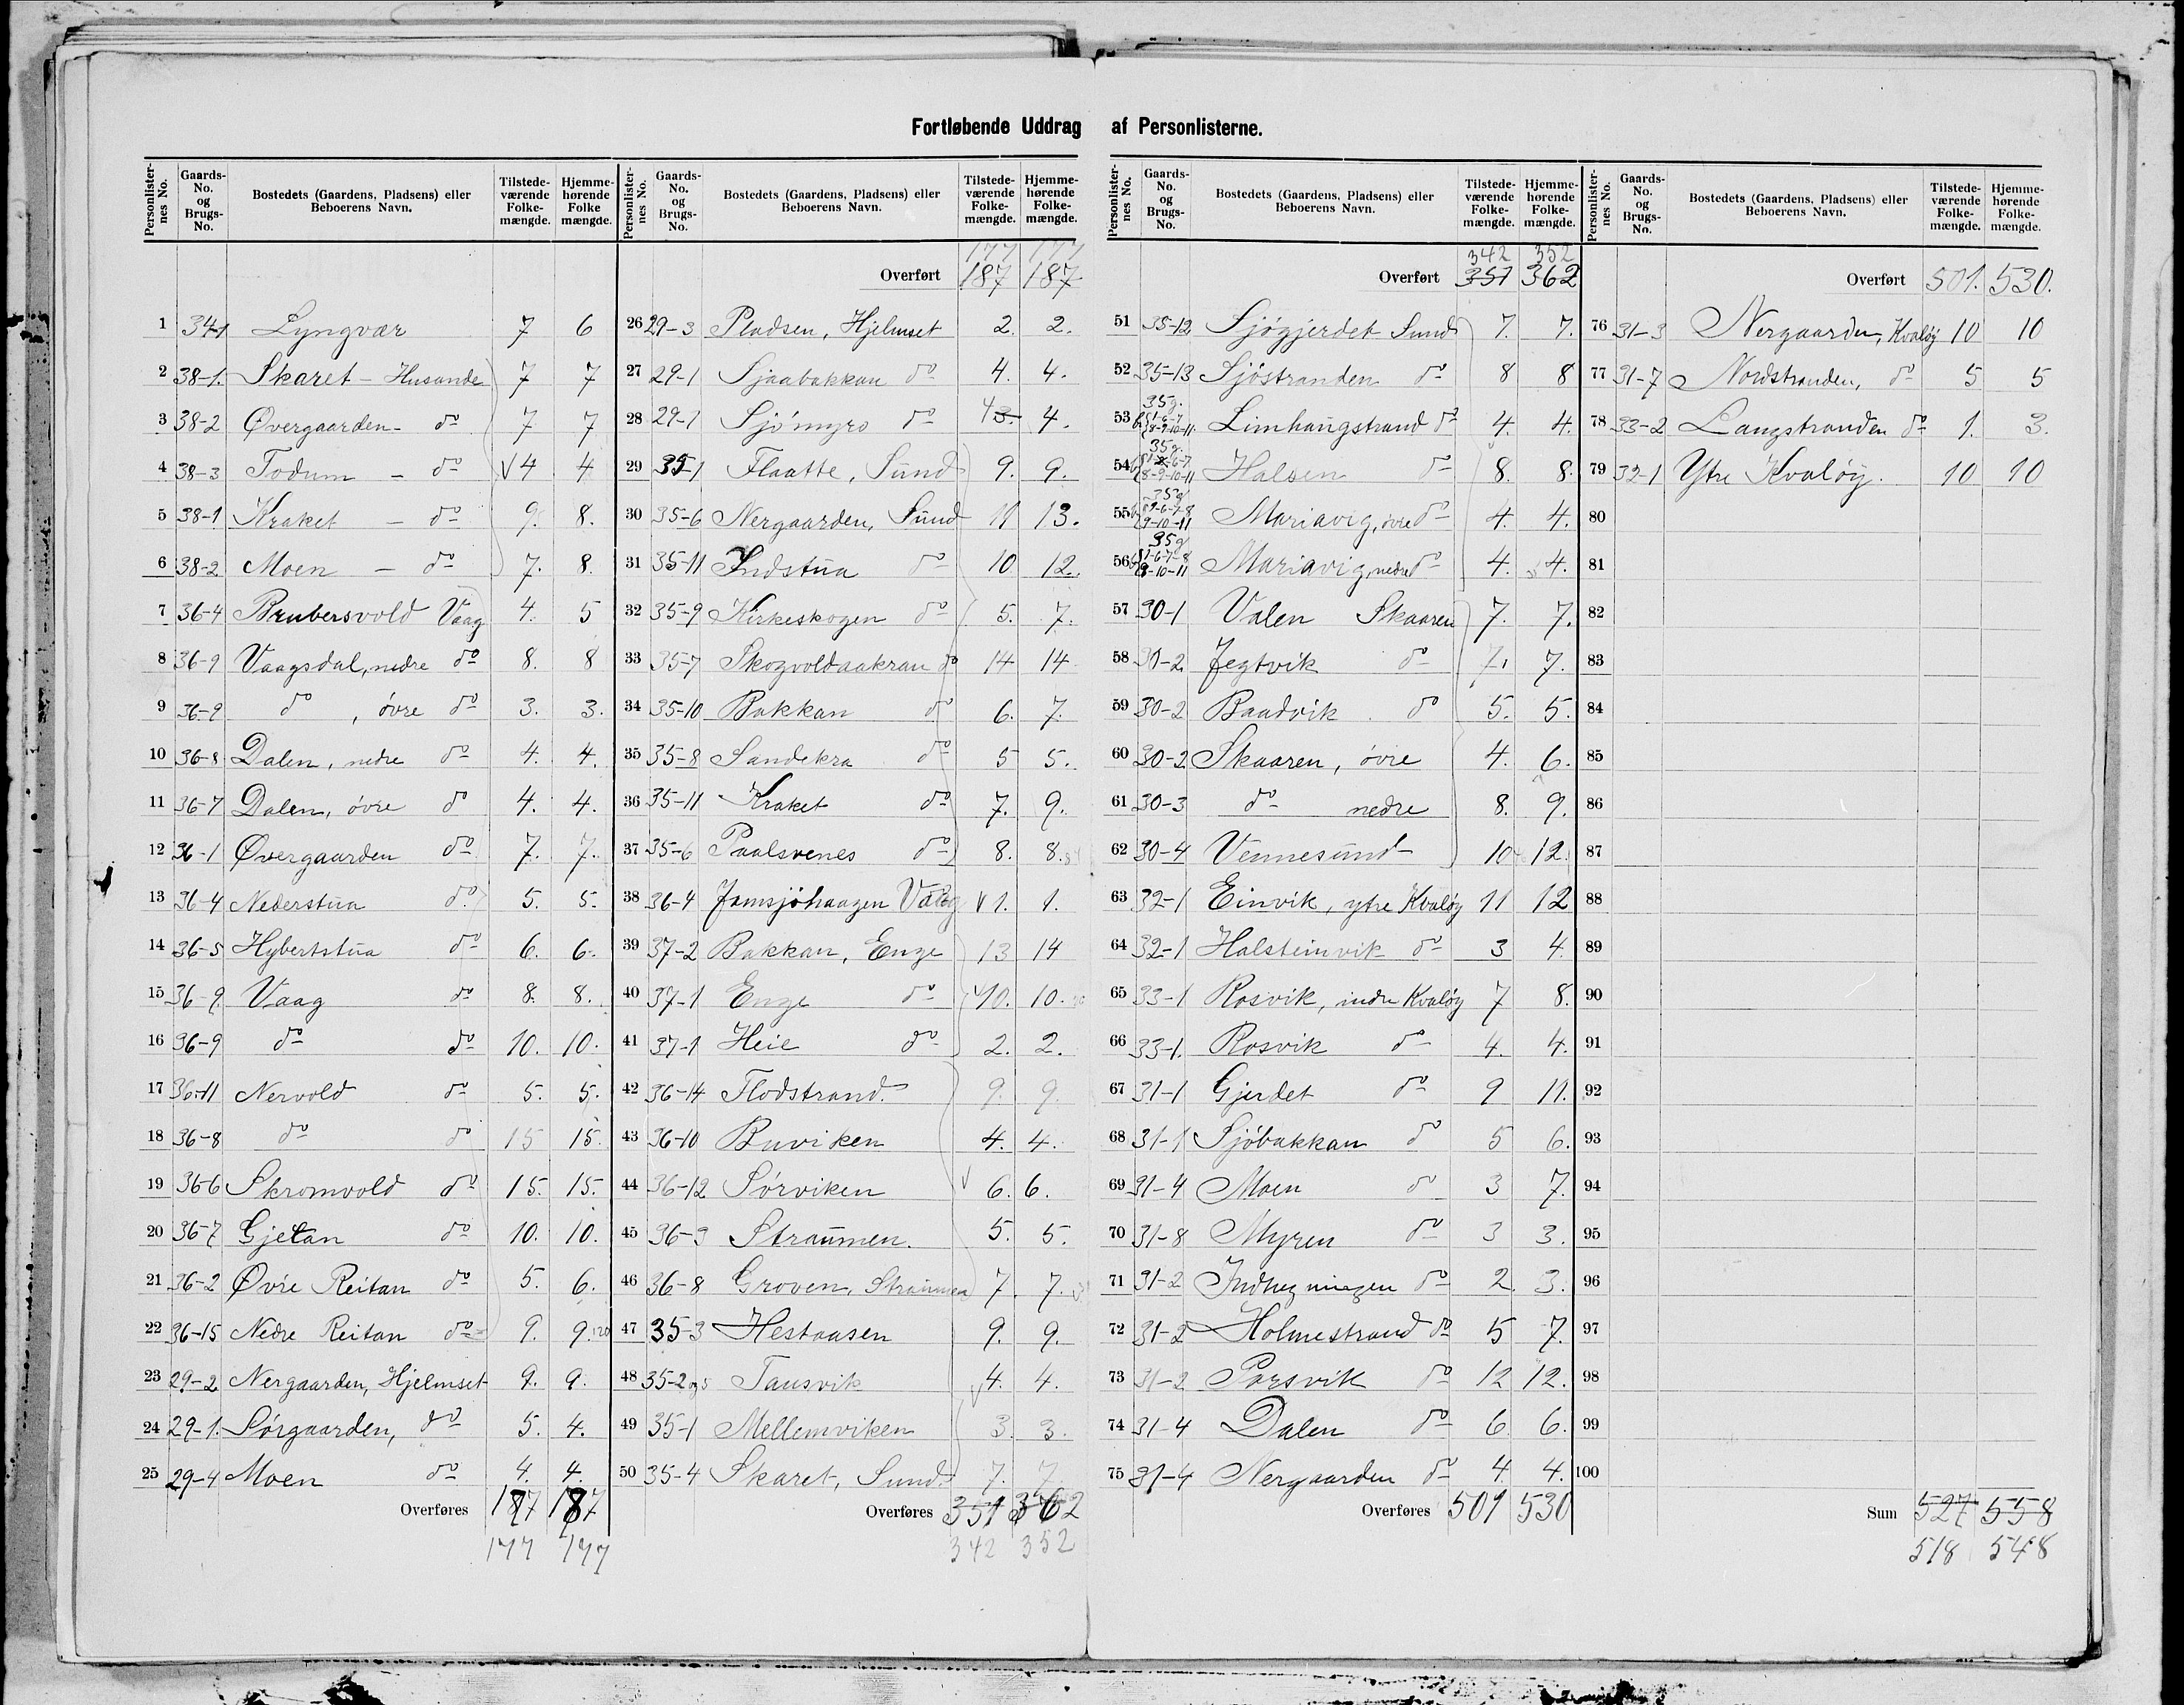 Fortløbende Uddrag af Personlisterne.
Personlisternes No. Gaards-No. og Brugs-No. Bostedets (Gaardens, Pladsens) eller Beboerens Navn. Tilstedeværende Folkemængde. Hjemmehørende Folkemængde.
1 34-1 Lyngvær 7 6
2 38-1. Skaret - Husande 7 7
3 38-2 Øvergaarden - do 7 7
4 38-3 Todum - do 4 4
5 38-1 Kraket - do 9. 8.
6 38-2 Moen - do 7. 8.
7 36-4 Brubersvold Vaag 4. 5
8 36-9 Vaagsdal, nedre do 8. 8
9 36-9 do, övre do 3. 3.
10 36-8 Dalen, nedre do 4. 4.
11 36-7 Dalen, övre do 4. 4.
12 36-1 Øvergaarden do 7. 7.
13 36-4 Nederstua do 5. 5.
14 36-5 Hybertstua do 6. 6.
15 36-9 Vaag do 8. 8.
16 36-9 do do 10. 10.
17 36-11 Nervold do 5. 5.
18 36-8 do do 15 15.
19 36-6 Skromvold do 15. 15.
20 36-7 Gjetan do 10. 10.
21 36-2 Øvre Reitan do 5. 6.
22 36-15 Nedre Reitan do 9. 9.
23 29-2 Nergaarden, Hjelmset 9. 9.
24 29-1. Sörgaarden, do 5. 4.
25 29-4 Moen do 4. 4.
Overføres 187 187
177 177
Personlisternes No. Gaards-No. og Brugs-No. Bostedets (Gaardens, Pladsens) eller Beboerens Navn. Tilstedeværende Folkemængde. Hjemmehørende Folkemængde.
177 177
Overført 187 187
26 29-3 Pladsen, Hjelmset 2. 2.
27 29-1 Sjaabakkan do 4. 4.
28 29-1 Sjömyro do 4 3. 4.
29 35-1 Flaatte, Sund 9. 9.
30 35-6 Nergaarden, Sund 11 13.
31 35-11 Indstua do 10 12.
32 35-9 Kirkeskogen do 5. 7.
33 35-7 Skogvoldaakran do 14 14
34 35-10 Bakkan do 6. 7.
35 35-8 Sandekra do 5 5.
36 35-11 Kraket do 7. 9.
37 35-6 Paalsvenes do 8. 8.
38 36-4 Jamsjöhaagen Vaag 1. 1.
39 37-2 Bakkan, Enge 13 14
40 37-1 Enge do 10. 10.
41 37-1 Heie do 2. 2.
42 36-14 Flodstrand. 9. 9.
43 36-10 Buviken 4. 4.
44 36-12 Sörviken 6. 6.
45 36-3 Straumen. 5. 5.
46 36-8 Groven, Straumen 7. 7.
47 35-3 Hestaasen 9. 9.
48 35-2 og 5 Tausvik 4. 4.
49 35-1 Mellemviken 3. 3.
50 35-4 Skaret, Sund. 7. 7.
Overføres 351 362
342 352
Personlisternes No. Gaards-No. og Brugs-No. Bostedets (Gaardens, Pladsens) eller Beboerens Navn. Tilstedeværende Folkemængde. Hjemmehørende Folkemængde.
342 352
Overført 351 362
51 35-12 Sjögjerdet Sund 7. 7.
52 35-13 Sjöstranden do 8 8
53 35 g. Limhaugstrand do 4. 4.
54 35 g. Halsen do 8. 8.
55 35 g Mariavig, övre do 4. 4.
56 35 g Mariavig, nedre do 4. 4.
57 30-1 Valen Skaaren 7. 7.
58 30-2 Jegtvik do 7. 7.
59 30-2 Baadvik do 5. 5.
60 30-2 Skaaren, övre 4. 6.
61 30-3 do nedre 8. 9.
62 30-4 Vennesund 10 12.
63 32-1 Einvik, ytre Kvalöy 11 12
64 32-1 Halsteinvik do 3 4.
65 33-1 Rosvik, indre Kvalöy 7 8.
66 33-1. Rosvik do 4. 4.
67 31-1 Gjerdet do 9 11.
68 31-1 Sjöbakkan do 5 6.
69 31-4 Moen do 3 7.
70 31-8 Myren do 3 3.
71 31-2 Indhegningen do 2. 3.
72 31-2 Holmestrand do 5 7.
73 31-2 Porsvik do 12 12.
74 31-4 Dalen do 6 6.
75 31-4 Nergaarden do 4. 4.
Overføres 501 530
Personlisternes No. Gaards-No. og Brugs-No. Bostedets (Gaardens, Pladsens) eller Beboerens Navn. Tilstedeværende Folkemængde. Hjemmehørende Folkemængde.
Overført 501. 530.
76 31-3 Nergaarden, Kvalöy 10 10
77 31-7 Nordstranden, do 5 5
78 33-2 Langstranden do 1. 3.
79 32-1 Ytre Kvalöy. 10 10
80
81
82
83
84
85
86
87
88
89
90
91
92
93
94
95
96
97
98
99
100
Sum 527 558
518 548